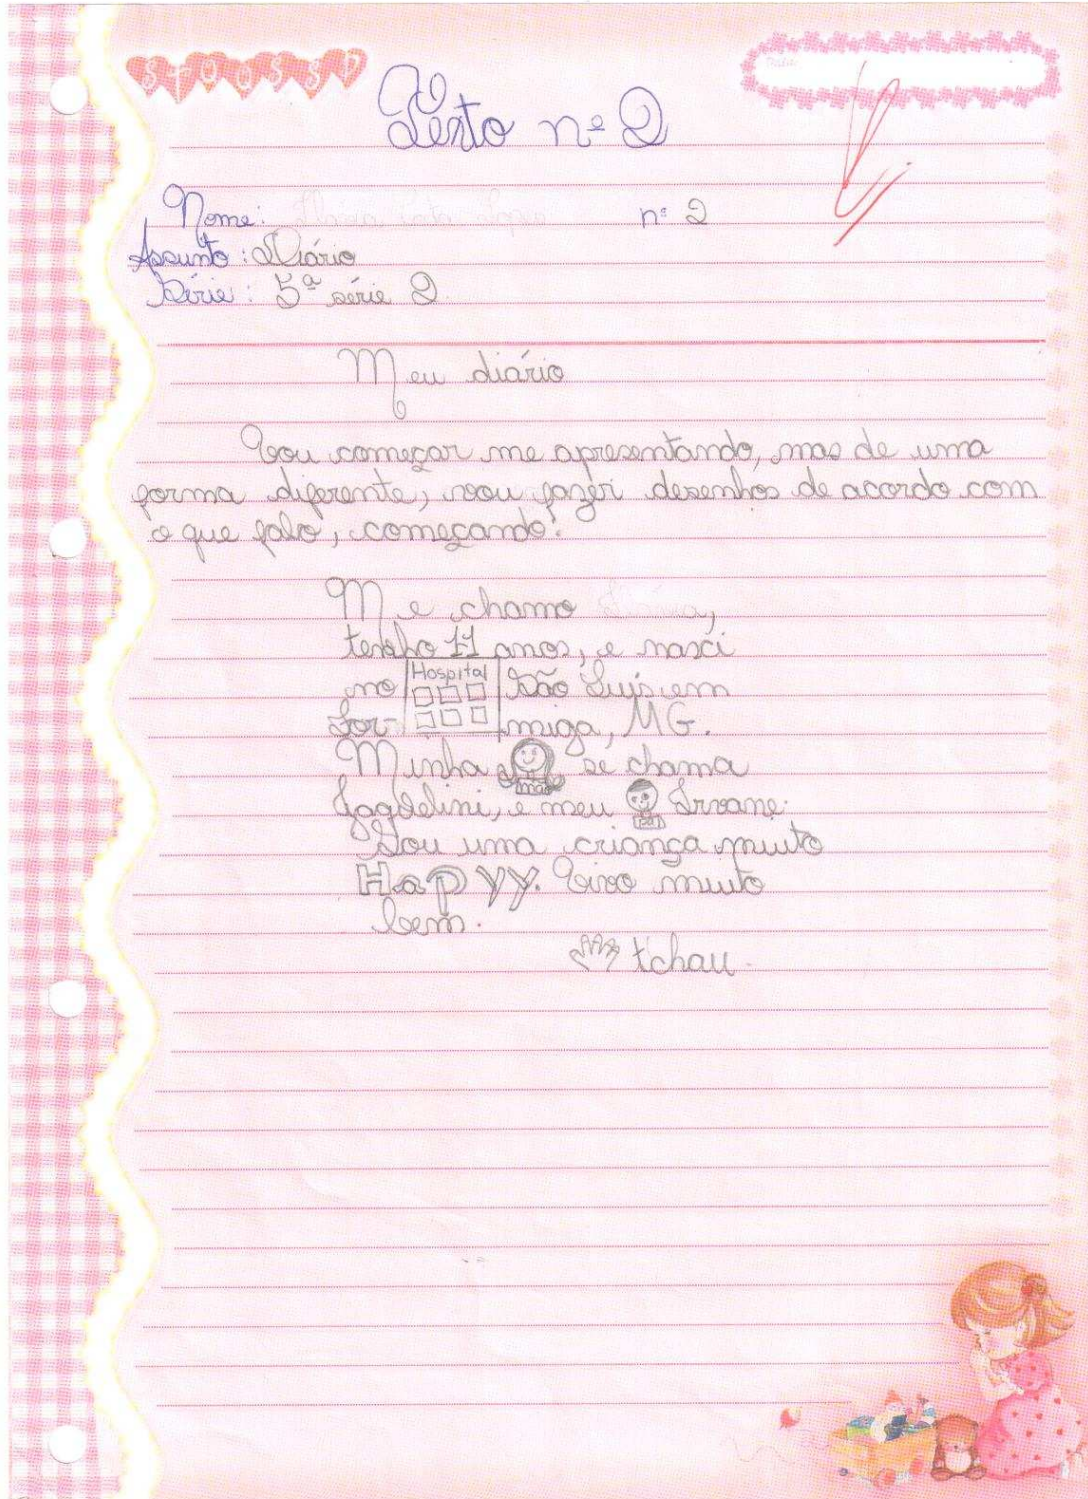 Texto nº 2
Nome: nº 2
Assunto: Diário
Série: 5ª série 2
Meu diário
Vou começar me apresentando, mas de uma
forma diferente, vou fazer desenhos de acordo com
o que falo, começando!
Me chamo
tenho 11 anos, e nasci
no Hospital São Luís em
For miga, MG.
Minha mãe se chama
e meu pai
Sou uma criança muito
Happy. Vivo muito
bem.
tchau.